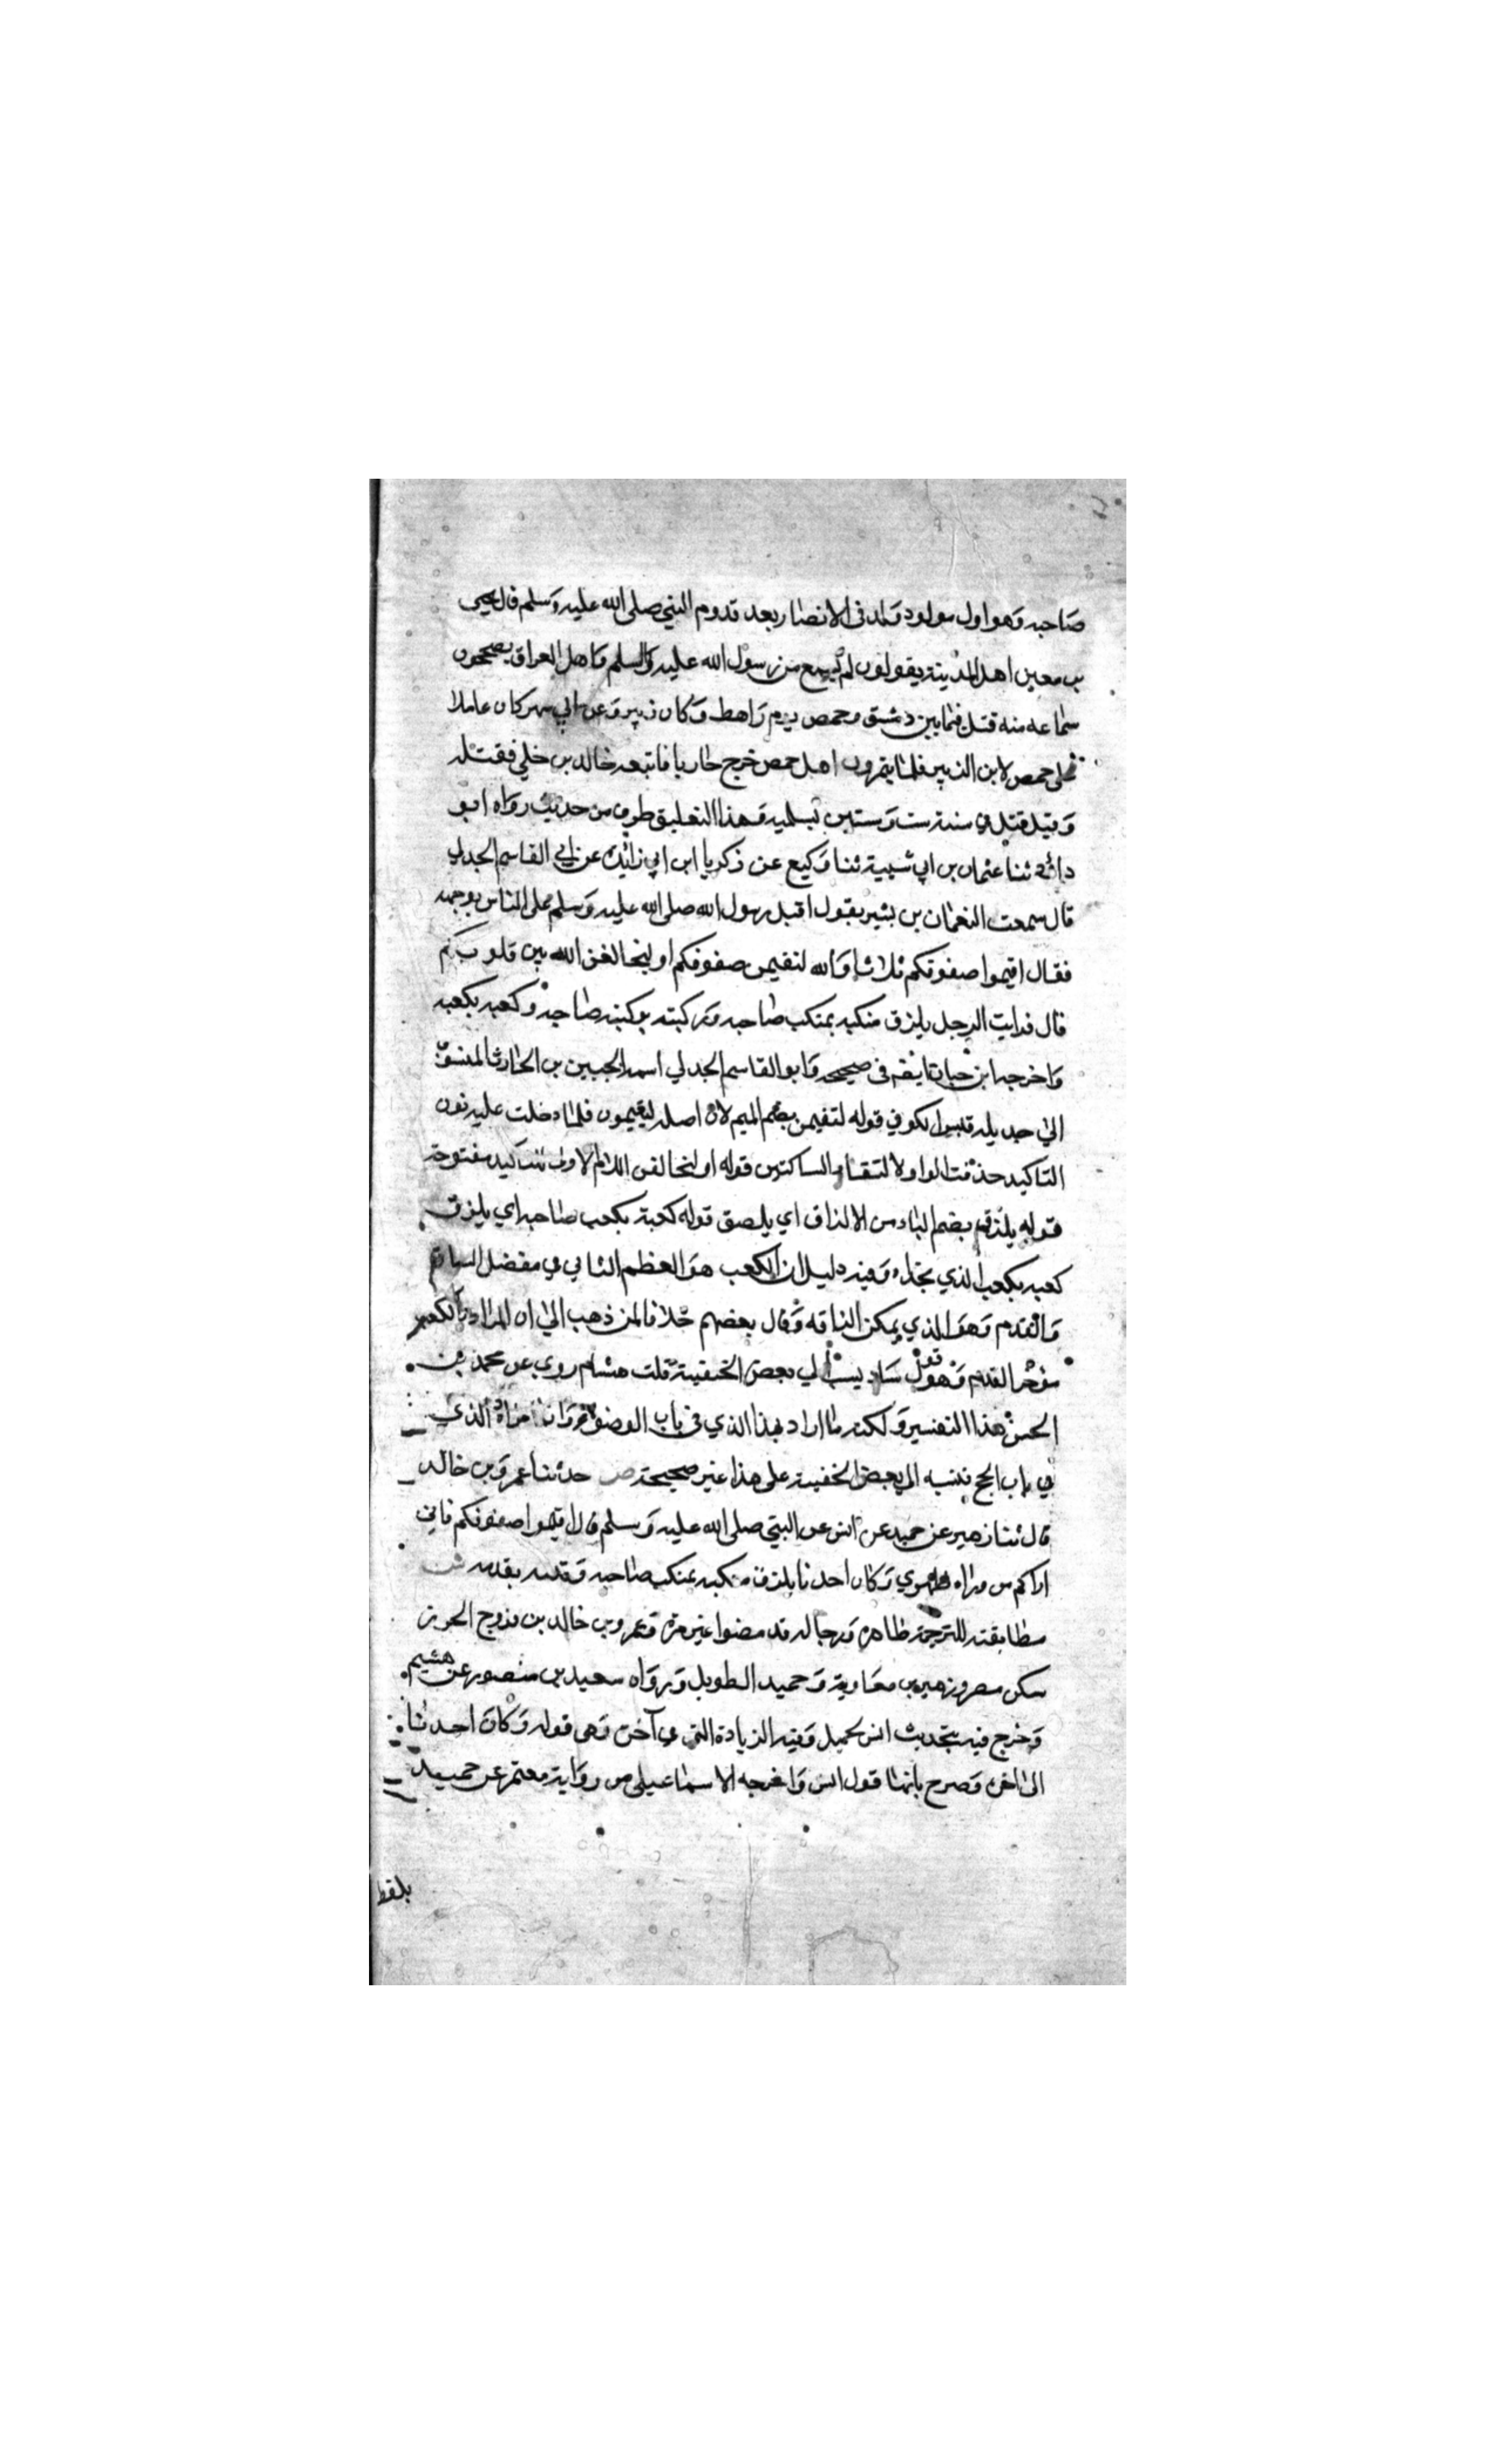 صاحبه وهو اول مولود ولد في الانصار بعد قدوم النبي صلى الله عليه وسلم قال يحيى
بن معين اهل المدينة يقولون لم يسمع من رسول الله عليه والسلم واهل العراق يصححون
سماعه منه قتل فيما بين دشق وحمص يوم راهط وكان زبير وعن ابي مسهر كان عاملا
على حمص لابن الزبير فلما يتمرون اهل حمص خرج هاربا فاتبعه خالد بن خلي فقتله
وقيل قتل في سنة ست وستين بسلمية وهذا التعليق طرف من حديث رواه ابو
داود ثنا عثمان بن ابي شيبة ثنا وكيع عن زكريا ابن ابي زائدة عن ابي القاسم الجدلي
قال سمعت النعمان بن بشير يقول اقبل رسول الله صلى الله عليه وسلم على الناس بوجهه
فقال اقيموا صفوفكم ثلاثا والله لتقيمن صفوفكم او ليخالفن الله بين قلوبكم
قال فرايت الرجل يلزق منكبه بمنكب صاحبه وركبته بركبته صاحبه وكعبه بكعبه
واخرجه ابن حبان ايضا في صحيحه وابو القاسم الجدلي اسمه الجبين بن الحارث المنسوب
الى جديله قيس الكوفي قوله لتقيمن بضم الميم لان اصله ليقيمون فلما دخلت عليه نون
التاكيد حذفت الواو لالتقاء الساكنين قوله او لنخالفن اللام الاولى للتاكيد مفتوحة
قوله يلزق بضم الياء من الالزاق اي يلصق قوله كعبة بكعب صاحبه اي يلزق
كعبه بكعب الذي بحذاه وفيه دليل ان الكعب هو العظم الناتي في مفصل الساق
والقدم وهو الذي يمكن الزاقه وقال بعضهم خلافا لمن ذهب الى ان المراد بالكعب
مؤخر القدم وهو قول شاد ينسب الي بعض الحنفية قلت هشام روى عن محمد بن
الحسن هذا التفسير ولكنه ما اراد بهذا الذي في باب الوضوء وانما مراده الذي
في باب الحج فنسبه الى بعض الحنفية على هذا غير صحيحة ص حدثنا عمرو بن خالد
قال ثنا زهير عن حميد عن انس عن النبي صلى الله عليه وسلم قال اقيموا صفوفكم فاني
اراكم من وراء ظهري وكان احدنا يلزق منكبه بمنكب صاحبه وقدمه بقدمه ش
مطابقته للترجمة ظاهرة ورجاله قد مضوا غير مرة وعمرو بن خالد بن فروخ الحرز
سكن مصر وزهير بن معاوية وحميد الطويل ورواه سعيد بن منصور عن هشيم
وخرج فيه بتحديث انس لحميد وفيه الزيادة التي في آخره وهي قوله وكان احدنا
الى اخره وصرح بانها قول انس واخرجه الاسماعيلي من رواية معتمر عن حميد
بلفظ